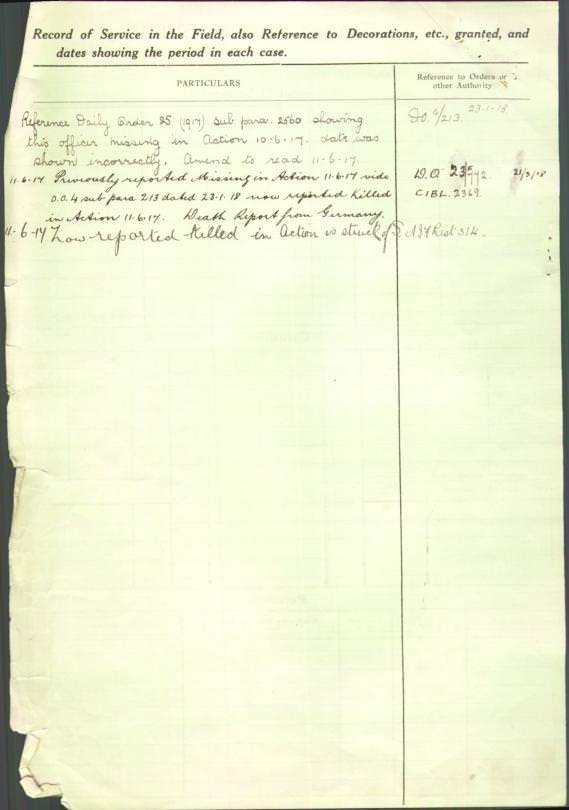 Record of Service in the Field, also Reference to Decorations, etc., granted, and
dates showing the period in each case.
PARTICULARS
Reference to Orders or
other Authority
Reference Daily Order 25 (1917) sub para. 2560 showing
this officer missing in Action 10-6-17. date was
shown incorrectly. Amend to read 11-6-17.
DO. 4/213. 23-1-18
11-6-17 Previously reported Missing in Action 11.6.17 vide
D.O. 4 sub para 213 dated 23.1.18 now reported Killed
in Action 11.6.17. Death Report from Germany.
D.O. 21/3/18
CIBL. 2369.
11-6-17 Now reported Killed in Action is struck off AIF List 314.